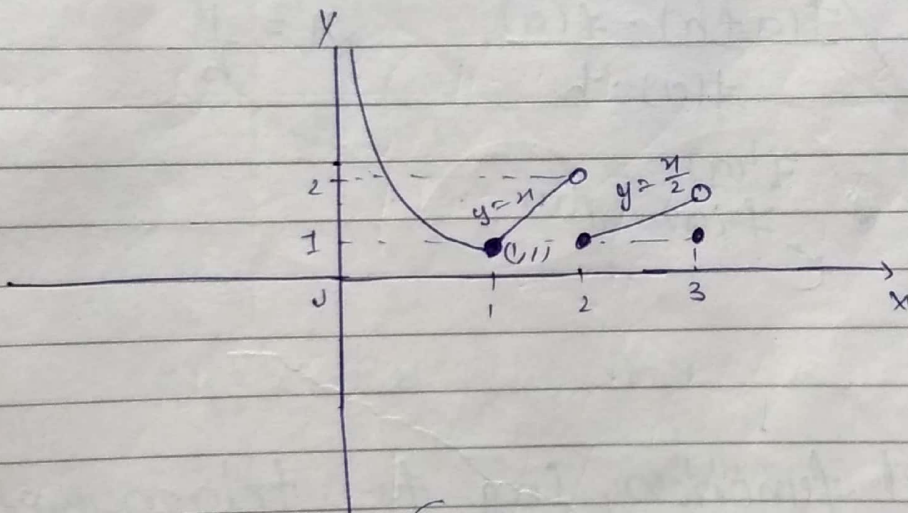 y
2
y = x
y = x/2
1
(1,1)
0
1
2
3
X